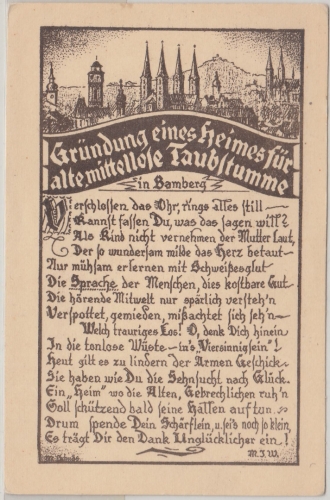 Gründung eines Heimes für
alte mittellose Taubstumme
in Bamberg
Verschlossen das Ohr, rings alles still –
Kannst fassen Du, was das sagen will?
Als Kind nicht vernehmen der Mutter Laut,
Der so wundersam milde das Herz betaut –
Nur mühsam erlernen mit Schweißesglut
Die Sprache der Menschen, dies kostbare Gut –
Die hörende Mitwelt nur spärlich versteh'n
Verspottet, gemieden, mißachtet sich seh'n –
Welch trauriges Los! O, denk Dich hinein
In die tonlose Wüste – in's "Viersinnigsein"!
Heut gilt es zu lindern der Armen Geschick –
Sie haben wie Du die Sehnsucht nach Glück.
Ein "Heim" wo die Alten, Gebrechlichen ruh'n
Soll schützend bald seine Hallen auftun.
Drum spende Dein Schärflein, u. sei's noch so klein,
Es trägt Dir den Dank Unglücklicher ein!
M.J.W.